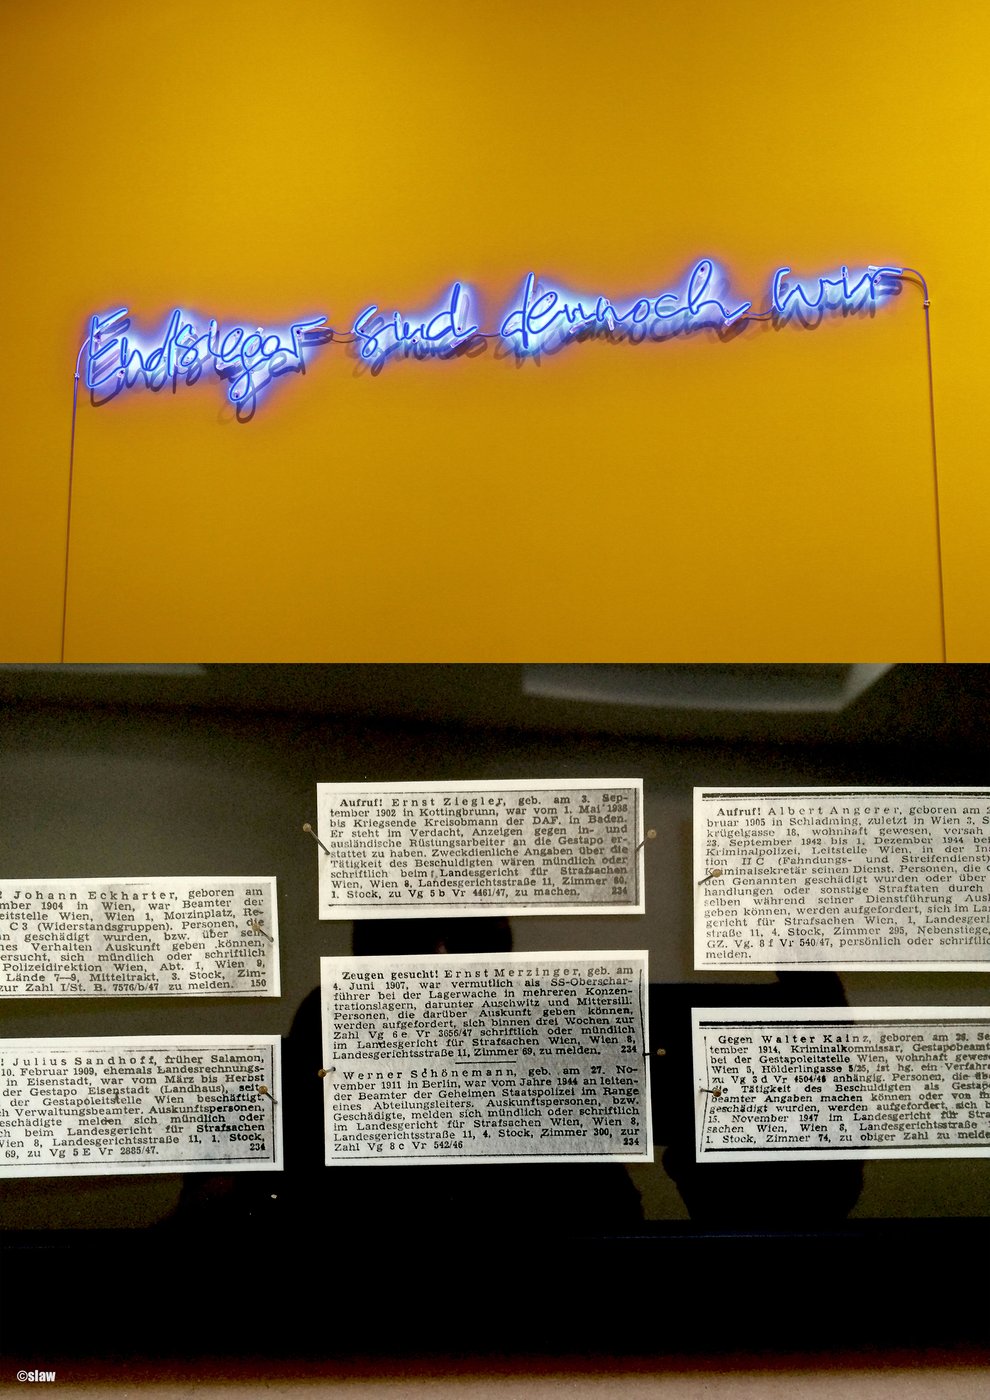 Endsieger sind dennoch wir
Johann Eckharter, geboren am
mber 1904 in Wien, war Beamter der
eitstelle Wien, Wien 1, Morzinplatz, Re-
C 3 (Widerstandsgruppen). Personen, die
n geschädigt wurden, bzw. über sein
nes Verhalten Auskunft geben können,
ersucht, sich mündlich oder schriftlich
Polizeidirektion Wien, Abt. I, Wien 9,
Lände 7—9, Mitteltrakt, 3. Stock, Zim-
zur Zahl I/St. B. 7576/b/47 zu melden. 150
Julius Sandhoff, früher Salamon,
10. Februar 1909, ehemals Landesrechnungs-
in Eisenstadt, war vom März bis Herbst
der Gestapo Eisenstadt (Landhaus), seit
der Gestapoleitstelle Wien beschäftigt.
ch Verwaltungsbeamter. Auskunftspersonen,
eschädigte melden sich mündlich oder
ch beim Landesgericht für Strafsachen
Wien 8, Landesgerichtsstraße 11, 1. Stock,
69, zu Vg 5 E Vr 2885/47. 234
Aufruf! Ernst Ziegler, geb. am 3. Sep-
tember 1902 in Kottingbrunn, war vom 1. Mai 1938
bis Kriegsende Kreisobmann der DAF. in Baden.
Er steht im Verdacht, Anzeigen gegen in- und
ausländische Rüstungsarbeiter an die Gestapo er-
stattet zu haben. Zweckdienliche Angaben über die
Tätigkeit des Beschuldigten wären mündlich oder
schriftlich beim Landesgericht für Strafsachen
Wien, Wien 8, Landesgerichtsstraße 11, Zimmer 60,
1. Stock, zu Vg 5 b Vr 4461/47, zu machen. 234
Zeugen gesucht! Ernst Merzinger, geb. am
4. Juni 1907, war vermutlich als SS-Oberschar-
führer bei der Lagerwache in mehreren Konzen-
trationslagern, darunter Auschwitz und Mittersill.
Personen, die darüber Auskunft geben können,
werden aufgefordert, sich binnen drei Wochen zur
Zahl Vg 6 e Vr 3656/47 schriftlich oder mündlich
im Landesgericht für Strafsachen Wien, Wien 8,
Landesgerichtsstraße 11, Zimmer 69, zu melden. 234
Werner Schönemann, geb. am 27. No-
vember 1911 in Berlin, war vom Jahre 1944 an leiten-
der Beamter der Geheimen Staatspolizei im Range
eines Abteilungsleiters. Auskunftspersonen, bzw.
Geschädigte, melden sich mündlich oder schriftlich
im Landesgericht für Strafsachen Wien, Wien 8,
Landesgerichtsstraße 11, 4. Stock, Zimmer 300, zur
Zahl Vg 8 c Vr 542/46 234
Aufruf! Albert Angerer, geboren am
bruar 1905 in Schladming, zuletzt in Wien 3, S
krügelgasse 18, wohnhaft gewesen, versah
23. September 1942 bis 1. Dezember 1944 bei
Kriminalpolizei, Leitstelle Wien, in der In
tion II C (Fahndungs- und Streifendienst)
Kriminalsekretär seinen Dienst. Personen, die
den Genannten geschädigt wurden oder über
handlungen oder sonstige Straftaten durch
selben während seiner Dienstführung Ausk
geben können, werden aufgefordert, sich im Lan
gericht für Strafsachen Wien, 1, Landesgeri
straße 11, 4. Stock, Zimmer 295, Nebenstiege,
GZ. Vg. 8 f Vr 540/47, persönlich oder schriftlic
melden.
Gegen Walter Kainz, geboren am 26. Se
tember 1914, Kriminalkommissar, Gestapobeamt
der Gestapoleitstelle Wien, wohnhaft gewese
Wien 3, Hölderlingasse 5/25, ist hg. ein Verfahre
zu Vg 3 d Vr 4504/46 anhängig. Personen, die üb
die Tätigkeit des Beschuldigten als Gestap
beamter Angaben machen können oder von ih
geschädigt wurden, werden aufgefordert, sich b
15. November 1947 im Landesgericht für Stra
sachen Wien, Wien 8, Landesgerichtsstraße
1. Stock, Zimmer 74, zu obiger Zahl zu melde
©slaw